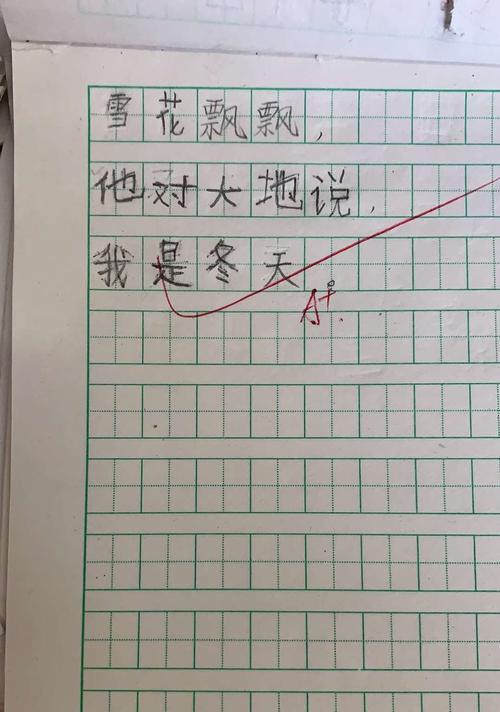 雪花飘飘，
他对大地说，
我是冬天
A+